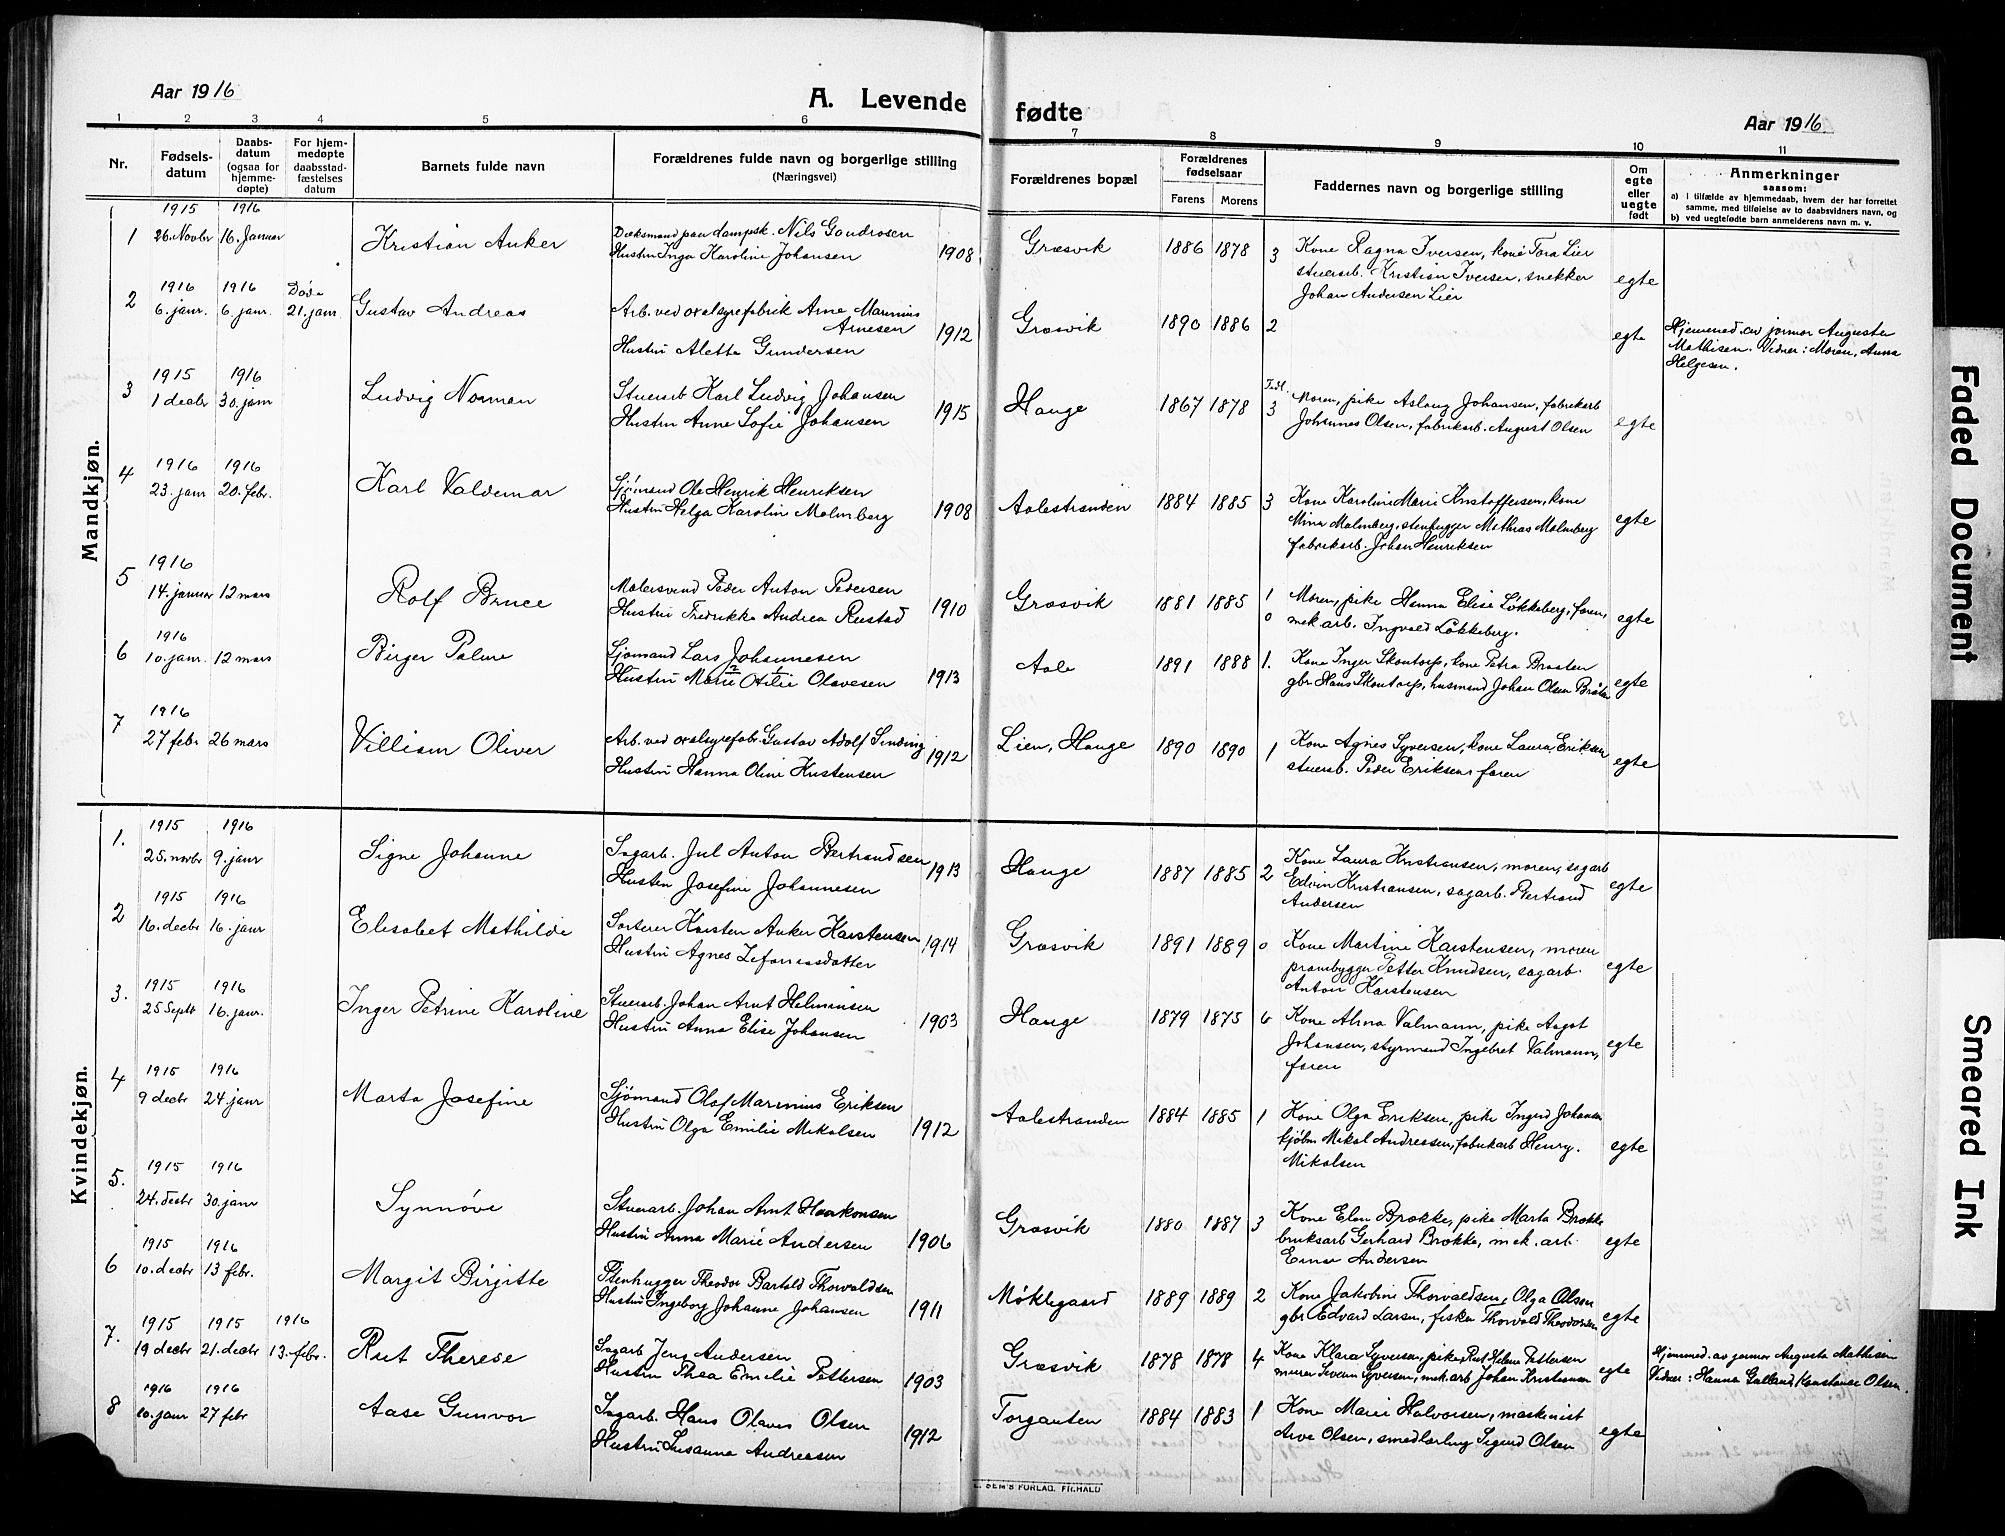 Aar 1916
A. Levende fødte
Aar 1916.
1 2 3 4 5 6 7 8 9 10 11
Nr.
Fødsels-
datum
Daabs-
datum
(ogsaa for
hjemme-
døpte)
For hjem-
medøpte
daabsstad-
fæstelses
datum
Barnets fulde navn
Forældrenes fulde navn og borgerlige stilling
(Næringsvei)
Forældrenes bopæl
Forældrenes
fødselsaar
Farens Morens
Faddernes navn og borgerlige stilling
Om
egte
eller
uegte
født
Anmerkninger
saasom:
a) i tilfælde av hjemmedaab, hvem der har forrettet
samme, med tilføielse av to daabsvidners navn, og
b) ved uegtefødte barn anmelderens navn m. v.
Mandkjøn.
1915 1916
1 26. Novbr 16. Januar Kristian Anker
Dæksmand paa dampsk. Nils Gundrosen
Hustru Inga Karoline Johansen 1908
Græsvik 1886 1878 3
Kone Ragna Iversen, kone Tora Lier
stuerarb. Kristian Iversen, snekker
Johan Andersen Lier
egte
1916 1916 Død
2 6. janr. 6. janr. 21. janr. Gustav Andreas
Arb. ved oxalsyrefabrik Arne Marinius
Arnesen
Hustru Alette Gundersen 1912
Græsvik 1890 1886 2
egte
Hjemmed. av jormor Augusta
Mathisen. Vidner: Moren, Anna
Helgesen.
1915 1916
3 1 decbr 30. jan Ludvig Norman
Stuerarb Karl Ludvig Johansen
Hustru Anne Sofie Johansen 1915
Hauge 1867 1878 3
Moren, pike Aslaug Johansen, fabrikarb
Johannes Olsen, fabrikarb. August Olsen
egte
1916 1916
4 23. janr 20. febr. Karl Valdemar
Sjömand Ole Henrik Henriksen
Hustru Helga Karolin Malmberg 1908
Aalestranden 1884 1885 3
Kone Karoline Marie Kristoffersen, kone
Mina Malmberg, stenhugger Mathias Malmberg
fabrikarb. Johan Henriksen
egte
1916
5 14. januar 12 mars Rolf Bruce
Malersvend Peder Anton Pedersen
Hustru Fredrikke Andrea Rustad 1910
Græsvik 1881 1885 1
0
Moren, pike Hanna Elise Lökkeberg, faren,
mek arb. Ingvald Lökkeberg.
egte
1916
6 10. janr. 12 mars Birger Palme
Sjömand Lars Johannesen
Hustru Marie Otilie Olavesen 1913
Aale 1891 1888 1.
Kone Inger Skontorp, kone Petra Braaten
gbr Hans Skontorp, husmand Johan Olsen Bråten
egte
1916
7 27 febr 26 mars Villiam Oliver
Arb. ved oxalsyrefabr. Gustav Adolf Sinding
Hustru Hanna Oline Kristensen 1912
Lien, Hauge 1890 1890 1
Kone Agnes Syversen, kone Laura Eriksen
stuerarb. Peder Eriksen, faren
egte
Kvindekjøn.
1915 1916
1. 25. novbr 9. janr Signe Johanne
Sagarb. Jul Anton Bertrandsen
Hustru Josefine Johannesen 1913
Hauge 1887 1885 2
Kone Laura Kristiansen, moren, sagarb
Edvin Kristiansen, sagarb. Bertrand
Andersen
egte
1915 1916
2 16. decbr 16. janr Elisabet Mathilde
Sorterer Karsten Anker Karstensen
Hustru Agnes Zefaniasdatter 1914
Græsvik 1891 1889 0
Kone Martine Karstensen, moren
prambygger Petter Knudsen, sagarb.
Anton Karstensen
egte
1915 1916
3. 25 Septbr 16. janr. Inger Petrine Karoline
Stuerarb. Johan Arnt Helminsen
Hustru Anna Elise Johansen 1903
Hauge 1879 1875 6
Kone Alma Valmann, pike Aagot
Johansen, styrmand Ingebret Valmann,
faren
egte
1915 1916
4 9 decbr 24. janr Marta Josefine
Sjömand Olaf Marinius Eriksen
Hustru Olga Emilie Mikalsen 1912
Aalestranden 1884 1885 1
Kone Olga Eriksen, pike Ingrid Johansen
kjøbm Mikal Andreasen, fabrikarb Henry
Mikalsen
egte
1915 1916
5. 24. decbr 30. janr Synnöve
Stuerarb. Johan Arnt Haakonsen
Hustru Anna Marie Andersen 1906
Græsvik 1880 1887 3
Kone Elen Brække, pike Marta Brække
bruksarb Gerhard Brække, mek. arb.
Einar Andersen
egte
1915 1916
6 10. decbr 13 febr. Margit Birgitte
Stenhugger Theodor Bartold Thorvaldsen
Hustru Ingeborg Johanne Johansen 1911
Møklegaard 1889 1889 2
Kone Jakobine Thorvaldsen, Olga Olsen
gbr Edvard Larsen, fisker Thorvald Theodorsen
egte
1915 1915 1916
7. 19 decbr 21. decbr 13. febr. Rut Therese
Sagarb Jens Andersen
Hustru Thea Emilie Pettersen 1903
Græsvik 1878 1878 4
Kone Klara Syversen, pike Rut Helene Pettersen
murer Severin Syversen, mek. arb Johan Kristiansen
egte
Hjemmed. av jormor Augusta Mathisen
Vidner: Hanna Galland, Konstanse Olsen.
1916 1916
8 10. janr 27 febr Aase Gunvor
Sagarb. Hans Olaves Olsen
Hustru Susanna Andreasen 1912
Torgauten 1884 1883 1
Kone Marie Halvorsen, maskinist
Arve Olsen, smedlærling Sigurd Olsen
egte
SEM'S FORLAG, FR.HALD
Faded Document
Smeared Ink